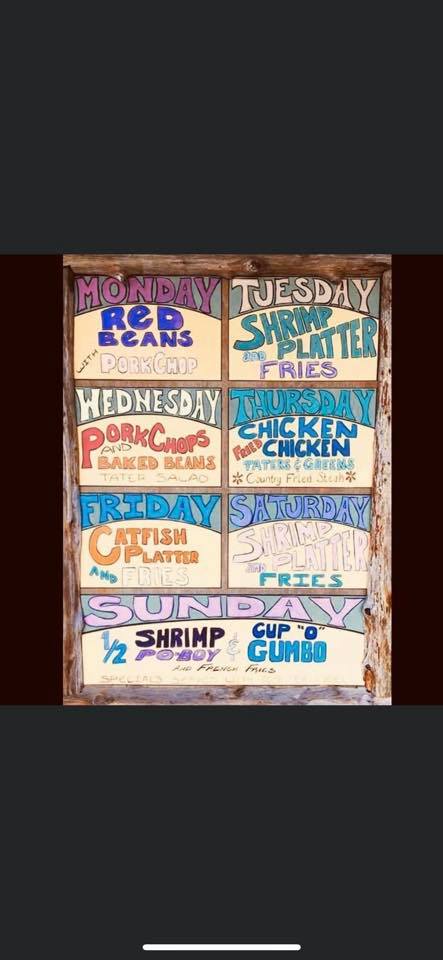 MONDAY
RED
BEANS
WITH PORKCHOP
TUESDAY
SHRIMP
AND PLATTER
FRIES
WEDNESDAY
PORKCHOPS
AND
BAKED BEANS
TATER SALAD
THURSDAY
CHICKEN
FRIED CHICKEN
TATERS & GREENS
* Country Fried Steak *
FRIDAY
CATFISH
PLATTER
AND FRIES
SATURDAY
SHRIMP
AND PLATTER
FRIES
SUNDAY
1/2 SHRIMP & CUP "O"
PO-BOY GUMBO
AND FRENCH FRIES
SPECIALS